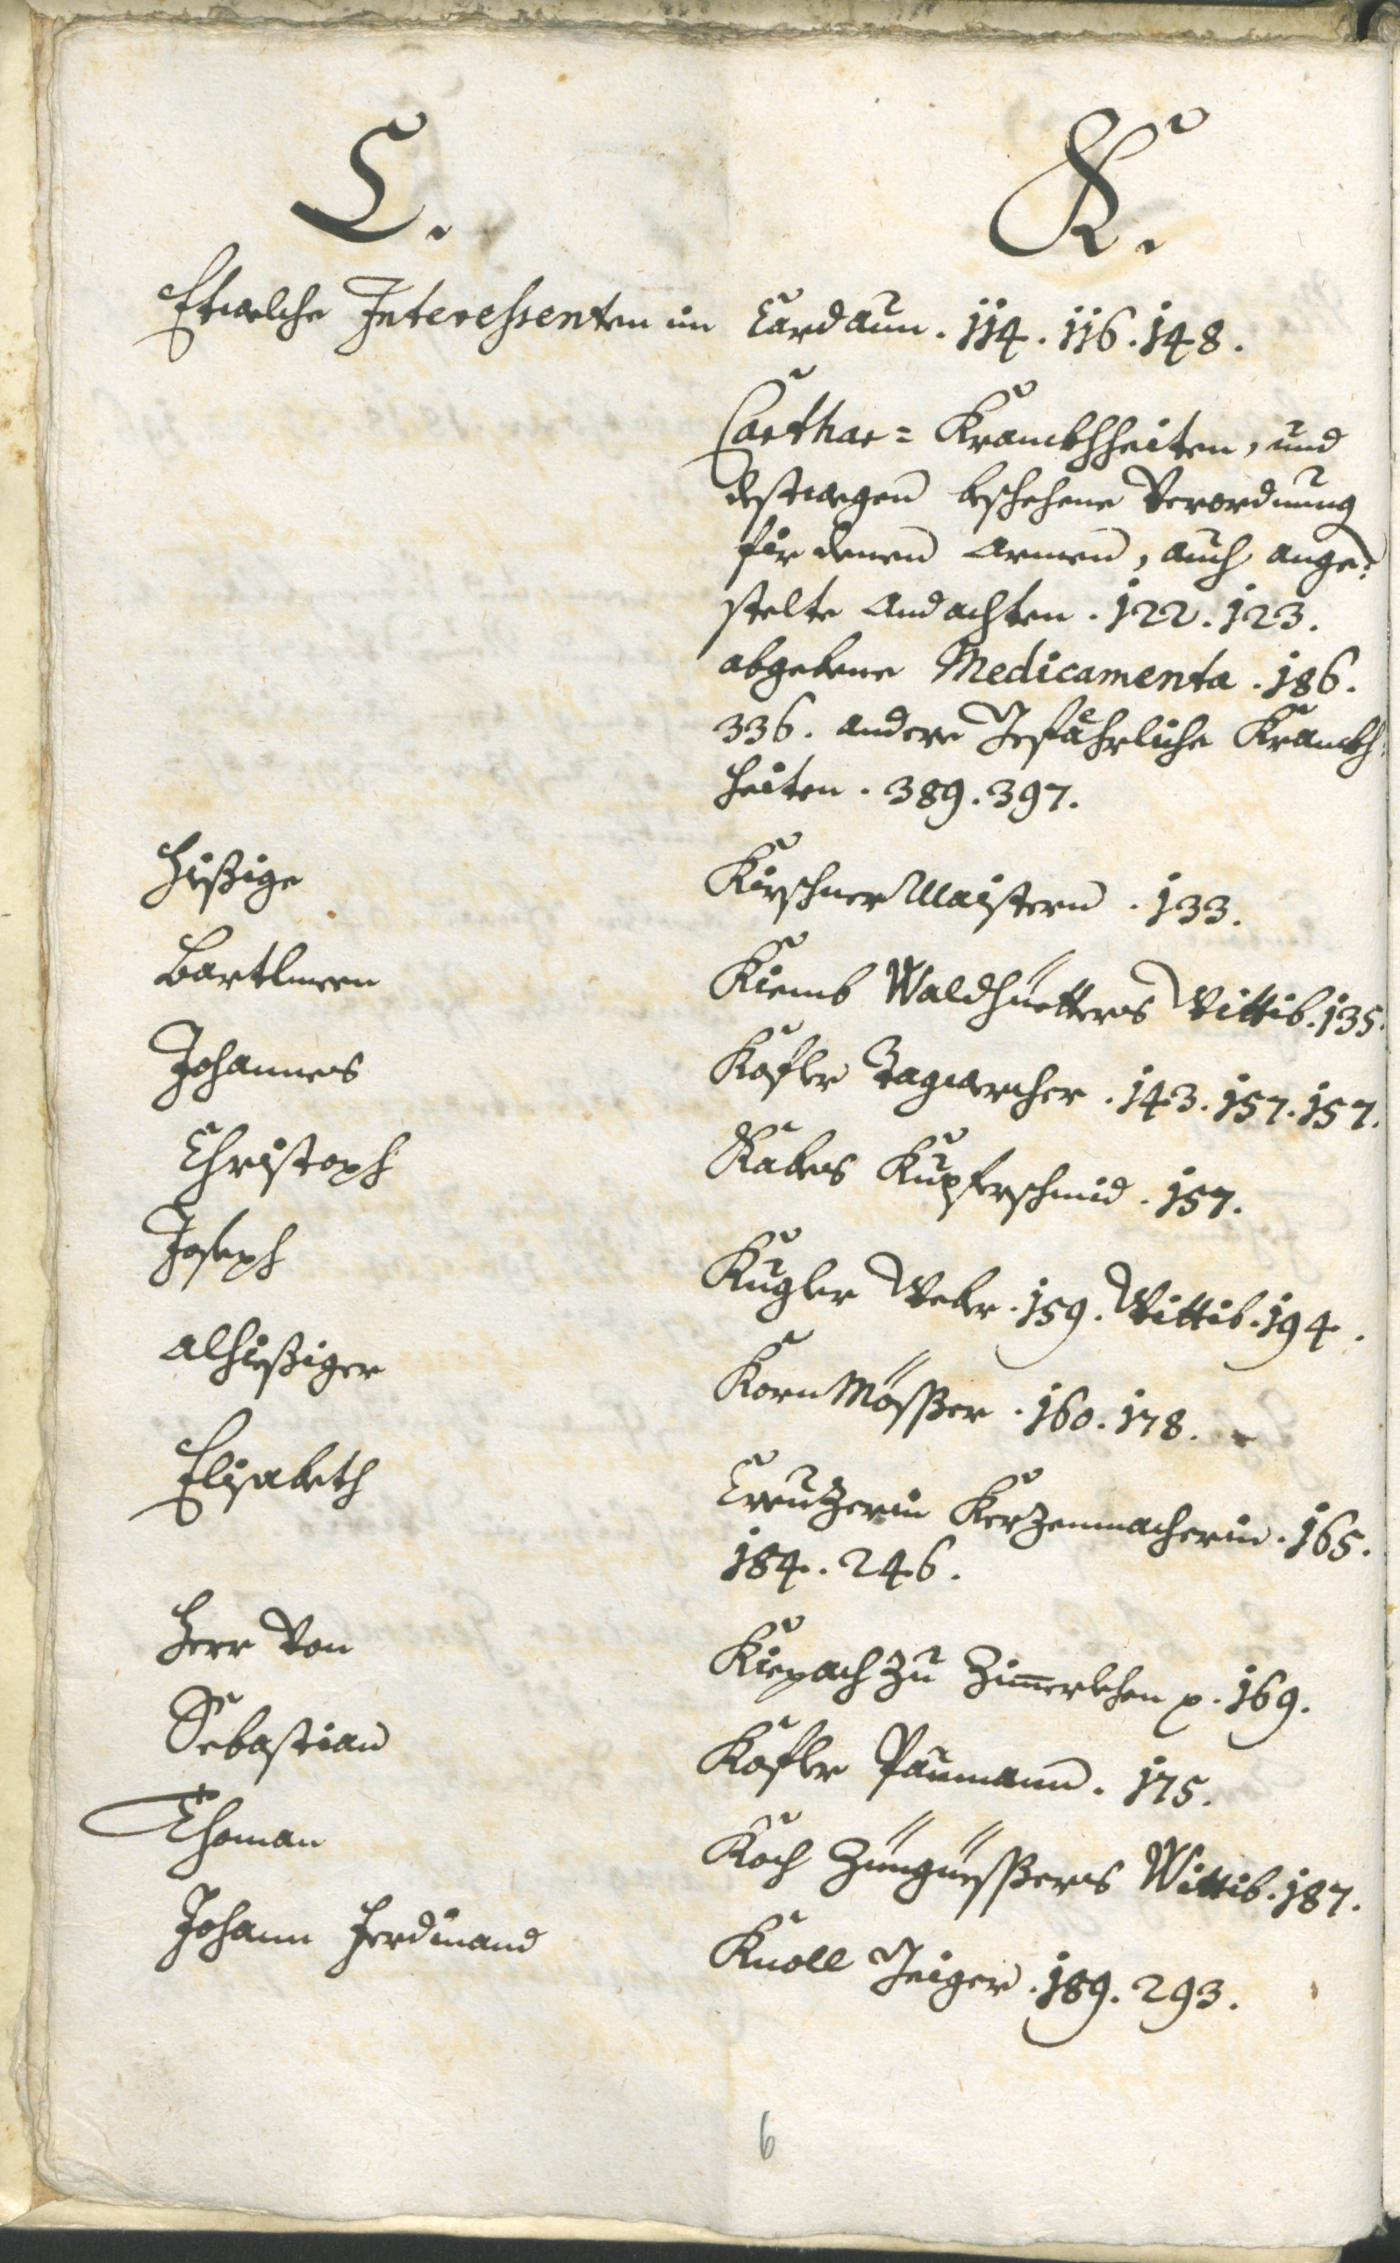 C. K.
Etwelche Interessenten im Cardaun. 114. 116. 148.
Carthar= Kranckhheiten, und
desswegen beschehene Verordnung
für denen Armen, auch ange=
stelte Andachten. 122. 123.
abgebene Medicamenta. 186.
336. andere Gefährliche Kranckh=
heiten. 389. 397.
Hießige Kirschner Maistern. 133.
Bartlmeen Kiemb Waldhüetters Wittib. 135.
Johannes Kofler Tagwercher. 143. 157. 157.
Christoph Kabes Kupferschmid. 157.
Joseph Kugler Weber. 159. Wittib. 194.
alhießiger Korn Mösßer. 160. 178.
Elisabeth Creutzerin Kerzenmacherin. 165.
184. 246.
Herr Von Kiepach zu Zimerlehen p. 169.
Sebastian Kofler Paumann. 175.
Thoman Koch Züngüesßers Wittib. 187.
Johann Ferdinand Knoll Geiger. 189. 293.
6